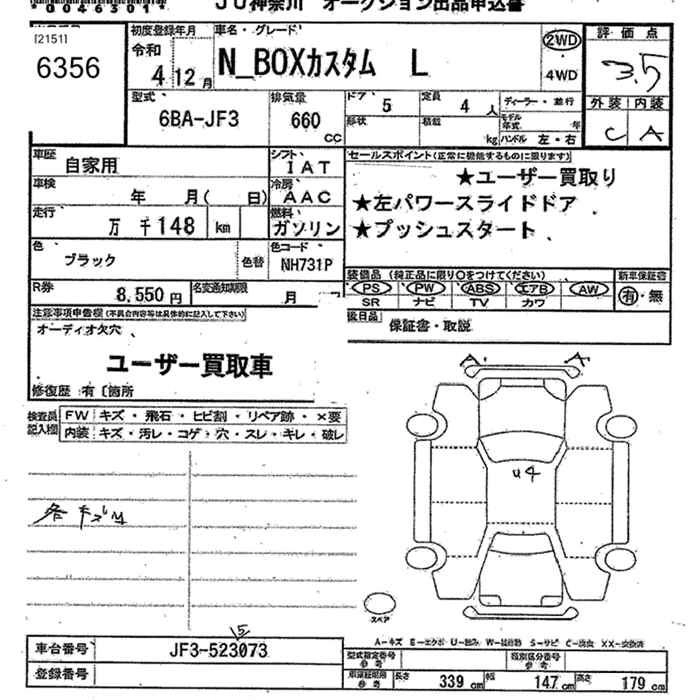 *0046301*
JU神奈川 オークション出品申込書
[2151]
6356
初度登録年月
令和
4 12月
車名・グレード
N_BOXカスタム L
2WD
4WD
評価点
3.5
外装 内装
C A
型式
6BA-JF3
排気量
660 cc
ドア
5
定員
4 人
形状
積載
kg
ディーラー・並行
モデル年式 年
ハンドル 左・右
車歴
自家用
シフト
IAT
車検
年 月( 日)
冷房
AAC
走行
万 千148 km
燃料
ガソリン
色
ブラック
色替
色コード
NH731P
R券
8,550円
名変通知期限
月
セールスポイント(正常に機能するものに限ります)
★ユーザー買取り
★左パワースライドドア
★プッシュスタート
装備品 (純正品に限り○をつけてください)
新車保証書
PS PW ABS エアB AW
有・無
SR ナビ TV カワ
後日品
保証書・取説
注意事項申告欄(不具合内容等は具体的に記入して下さい)
オーディオ欠穴
ユーザー買取車
修復歴 有〔箇所
検査員記入欄
FW キズ・飛石・ヒビ割・リペア跡・×要
内装 キズ・汚レ・コゲ・穴・スレ・キレ・破レ
各キズ凹
A A
U4
スペア
A-キズ E-エクボ U-凹み W-補修跡 S-サビ C-腐食 XX-交換済
5
車台番号
JF3-523073
登録番号
型式指定番号 参考
類別区分番号 参考
車庫証明用 参考
長さ 339 cm
幅 147 cm
高さ 179 cm